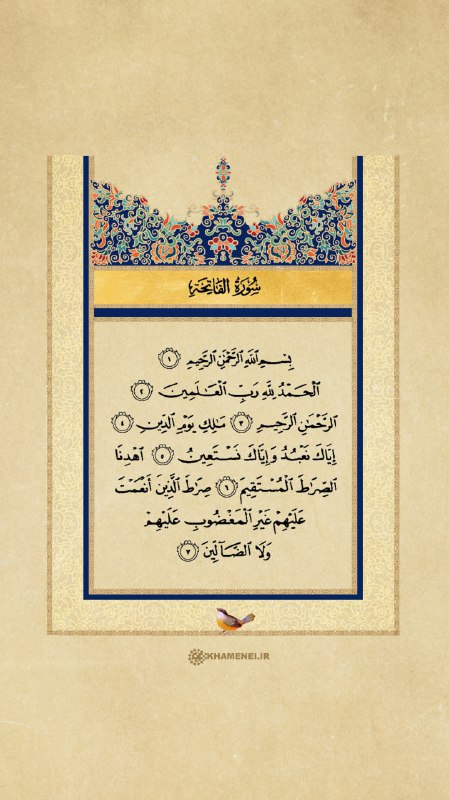 سُورَةُ الفَاتِحَةِ
بِسۡمِ ٱللَّهِ ٱلرَّحۡمَٰنِ ٱلرَّحِيمِ ١
ٱلۡحَمۡدُ لِلَّهِ رَبِّ ٱلۡعَٰلَمِينَ ٢
ٱلرَّحۡمَٰنِ ٱلرَّحِيمِ ٣ مَٰلِكِ يَوۡمِ ٱلدِّينِ ٤
إِيَّاكَ نَعۡبُدُ وَإِيَّاكَ نَسۡتَعِينُ ٥ ٱهۡدِنَا
ٱلصِّرَٰطَ ٱلۡمُسۡتَقِيمَ ٦ صِرَٰطَ ٱلَّذِينَ أَنۡعَمۡتَ
عَلَيۡهِمۡ غَيۡرِ ٱلۡمَغۡضُوبِ عَلَيۡهِمۡ
وَلَا ٱلضَّآلِّينَ ٧
KHAMENEI.IR